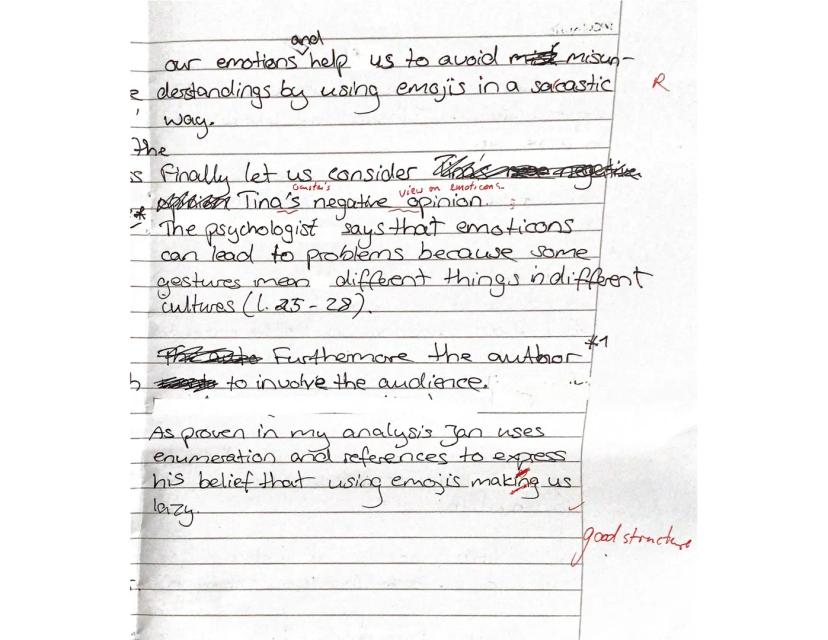 and
our emotions help us to avoid misun-
derstandings by using emojis in a sarcastic R
way.
the
Finally let us consider Tina's negative
view on emoticons
Tina's negative opinion.
The psychologist says that emoticons
can lead to problems because some
gestures mean different things in different
cultures (l. 25-28).
Furthermore the author *1
to involve the audience.
As proven in my analysis Jan uses
enumeration and references to express
his belief that using emojis making us
lazy.
good structure